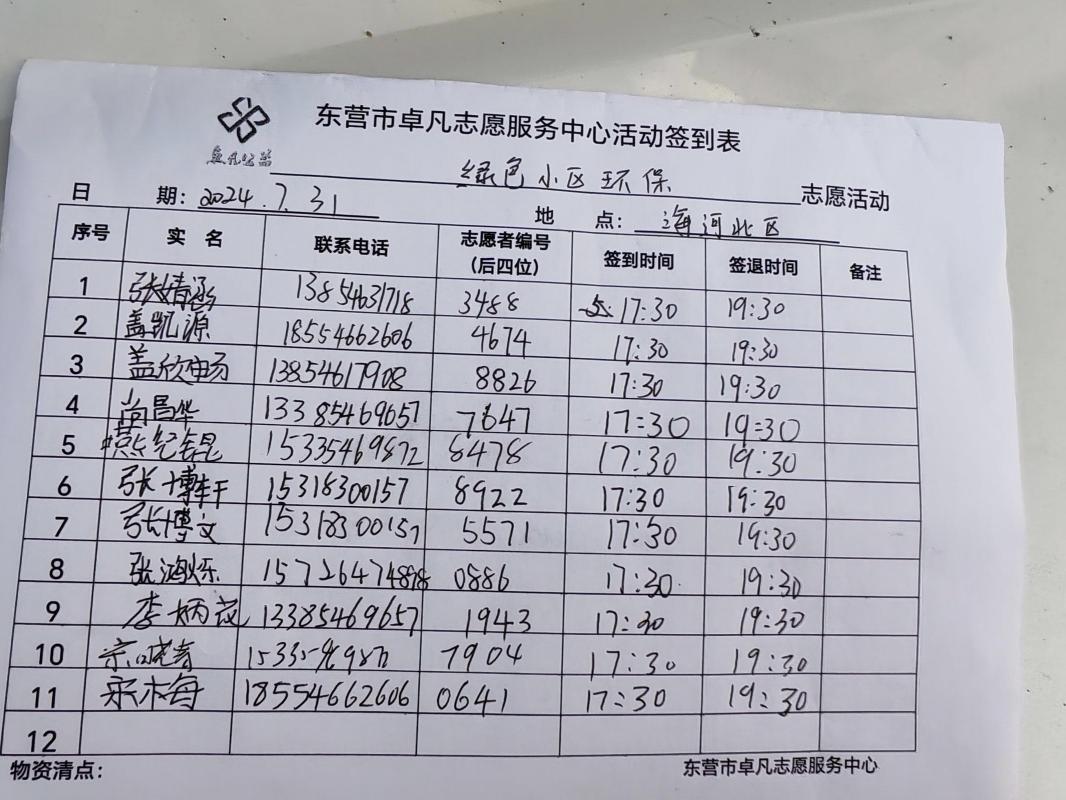 东营市卓凡志愿服务中心活动签到表
卓凡公益
绿色小区环保 志愿活动
日 期: 2024.7.31 地 点: 海河北区
序号 实 名 联系电话 志愿者编号（后四位） 签到时间 签退时间 备注
1 张婧涵 13854631718 3488 17:30 19:30
2 盖凯源 18554662606 4674 17:30 19:30
3 盖欣 13854617908 8826 17:30 19:30
4 尚昌华 13385469657 7647 17:30 19:30
5 燕纪锟 15335469872 8478 17:30 19:30
6 张博轩 15318300157 8922 17:30 19:30
7 张博文 15318300157 5571 17:30 19:30
8 张鸿烁 0886 17:30 19:30
9 李炳 13385469657 1943 17:30 19:30
10 7904 17:30 19:30
11 18554662606 0641 17:30 19:30
12
物资清点: 东营市卓凡志愿服务中心